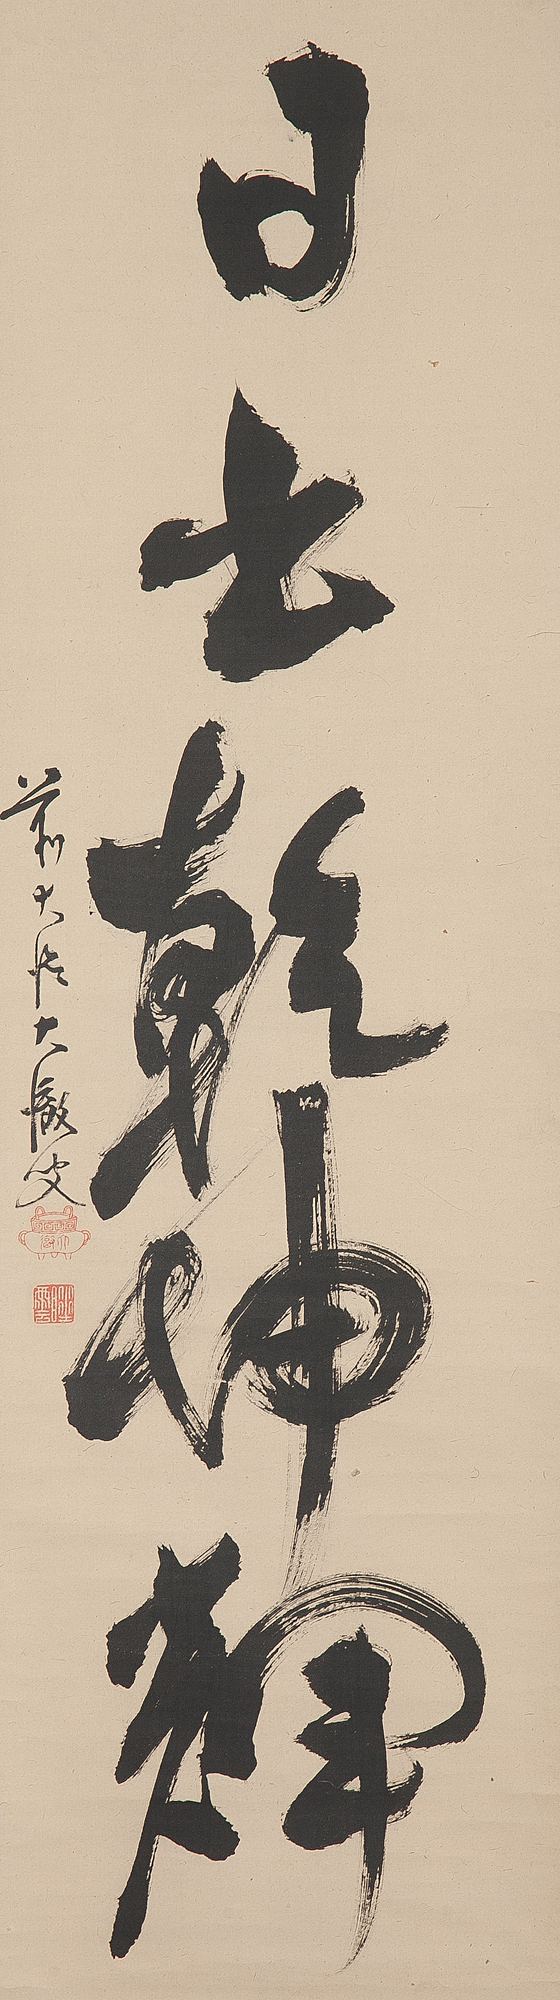 日出乾坤輝
前大徳大徹叟